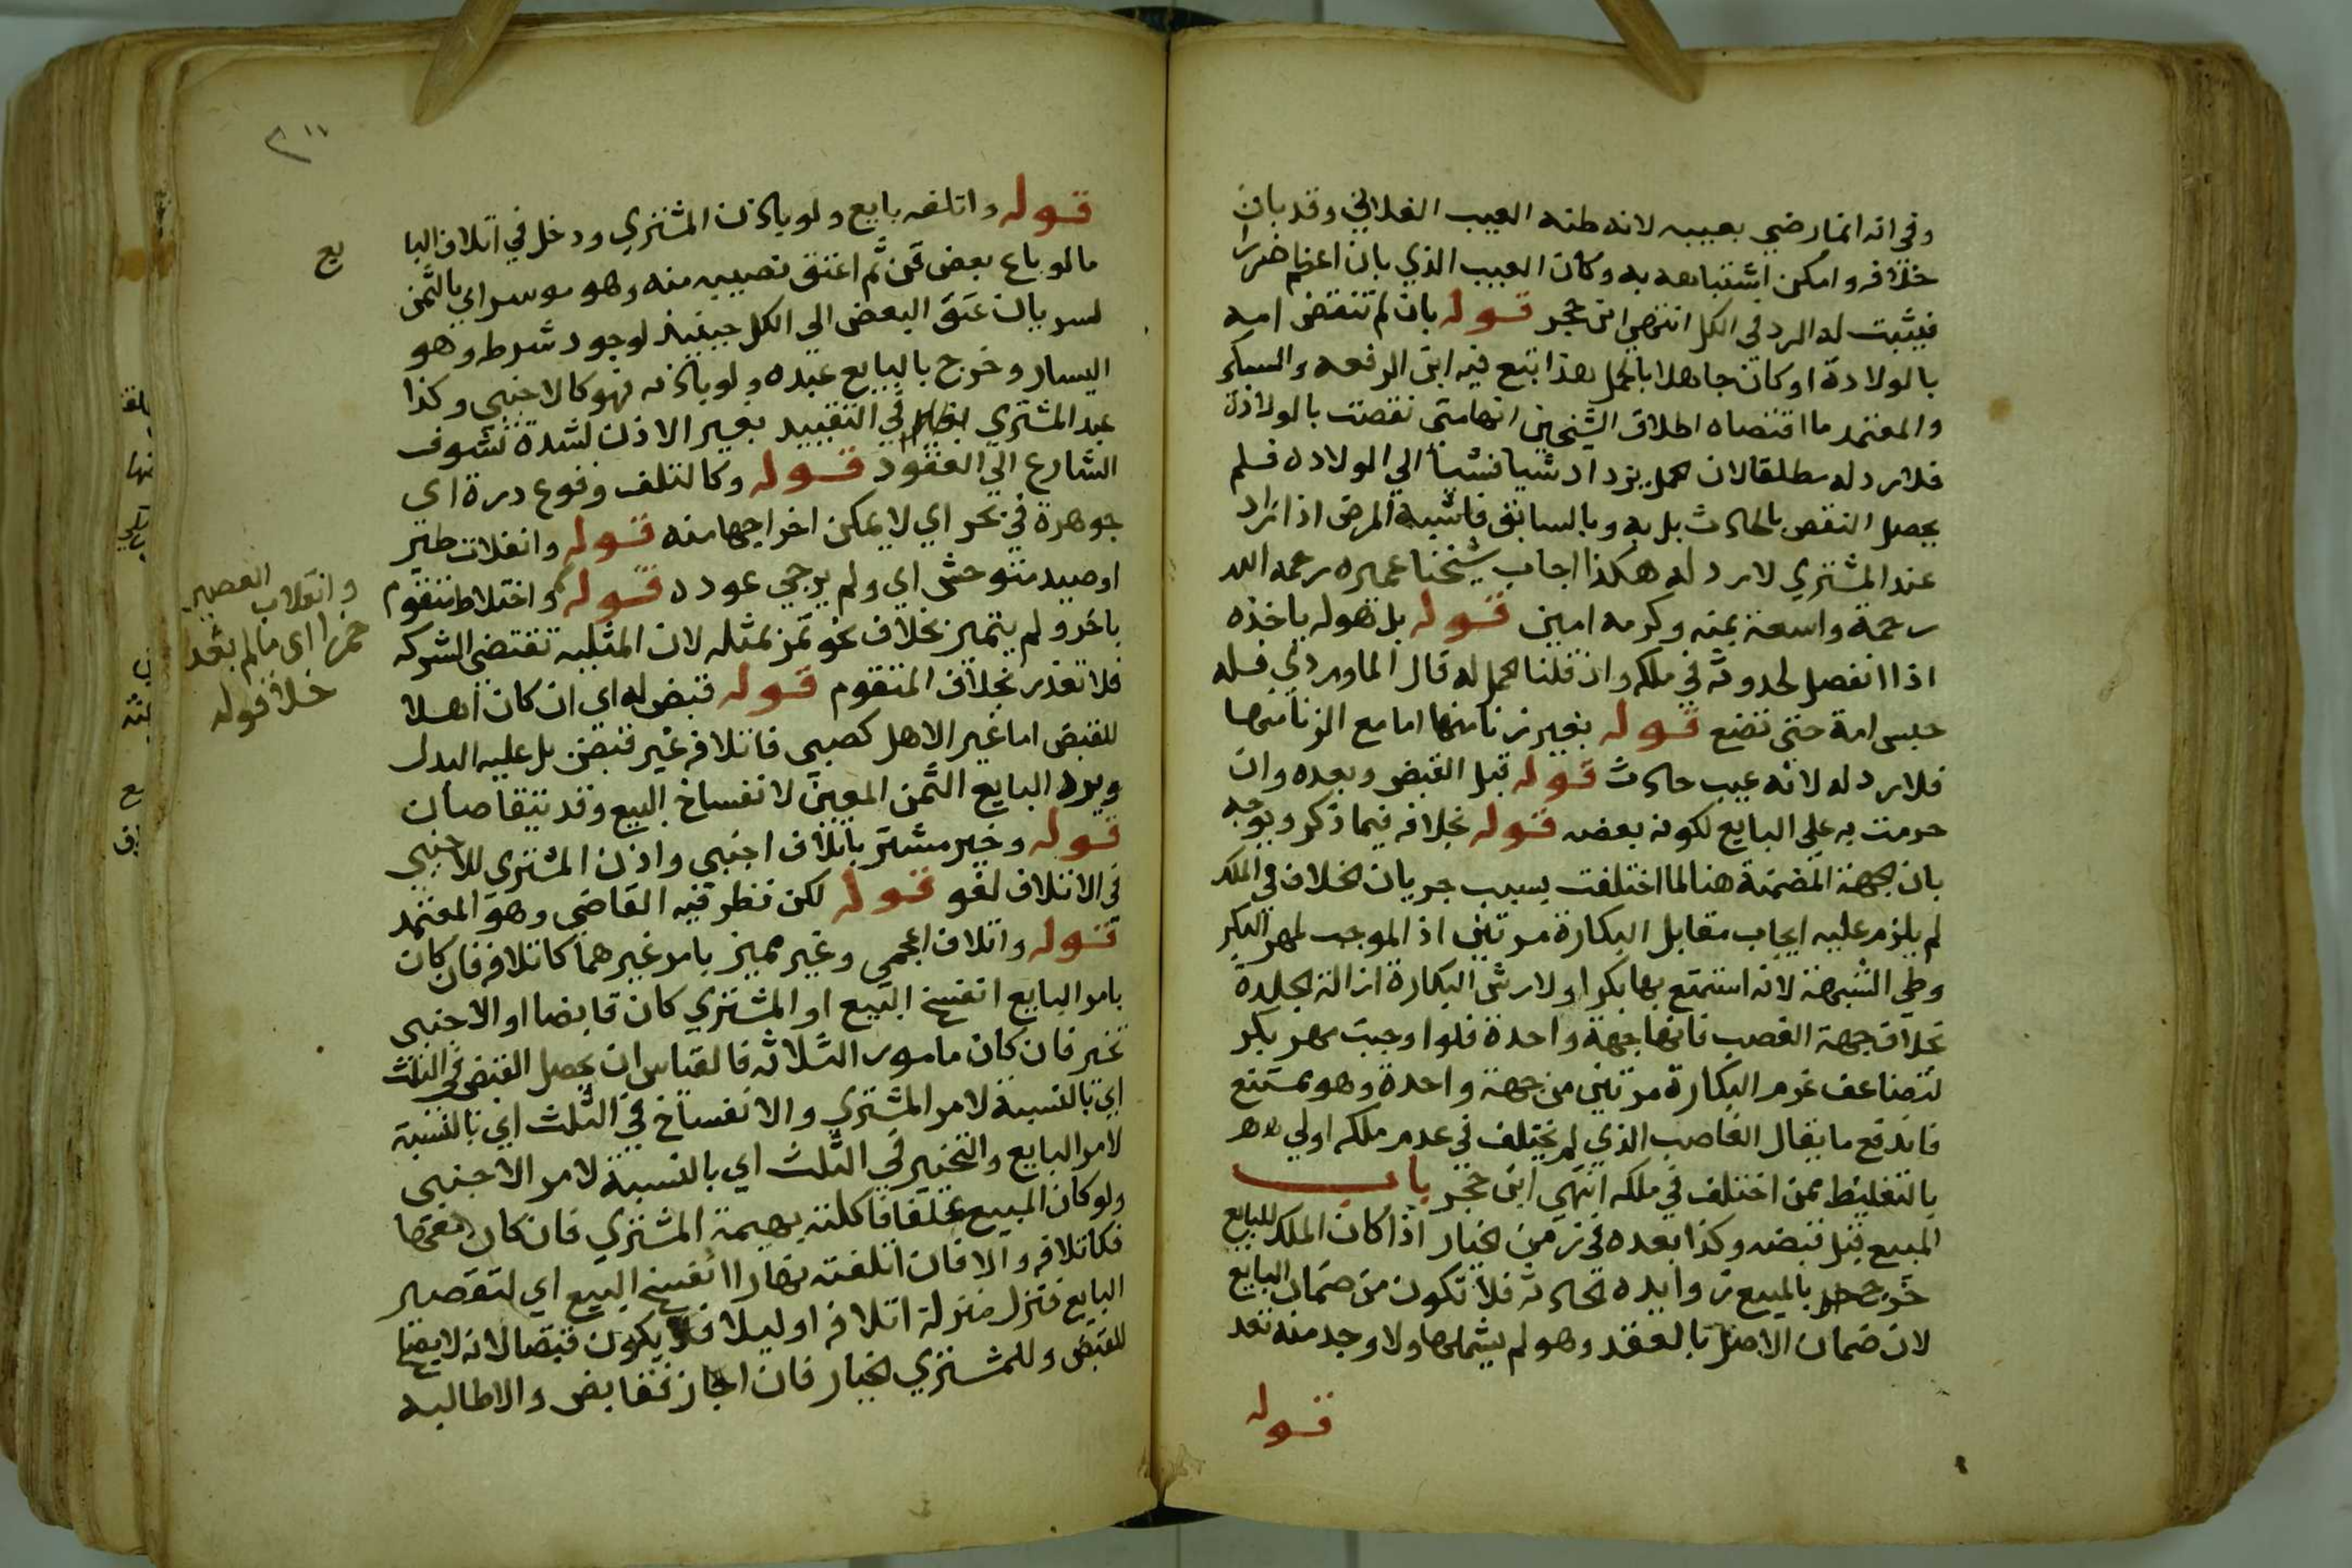 وفي انه انما رضي بعيبه لانه ظنه العيب الفلاني وقد بان
خلافه وامكن اشتباهه به وكان العيب الذي بان اعظم ضررا
فيثبت له الرد في الكل انتهى ابن حجر قوله بان لم تنقض امه
بالولادة او كان جاهلا بالحمل هذا تبع فيه ابن الرفعه والسبكي
والمعتمد ما اقتضاه اطلاق الشيخين انها متى نقصت بالولادة
فلا رد له مطلقا لان الحمل يزداد شيا فشيا الي الولاده فلم
يحصل النقص بالحادث بل به وبالسابق فاشبه المرض اذا زاد
عند المشتري لا رد له هكذا اجاب شيخنا عميره رحمه الله
رحمة واسعة بمنه وكرمه امين قوله بل هو له ياخذه
اذا انفصل لحدوثه في ملكه وان قلنا الحمل له قال الماوردي فله
حبس امة حتى تضع قوله بغير زنا منها اما مع الزنا منها
فلا رد له لانه عيب حادث قوله قبل القبض وبعده وان
حرمت به علي البايع لكونه بعضه قوله بخلافه فيما ذكر ويوجه
بان الجهة المضمنة هنا لما اختلفت بسبب جريان الخلاف في الملك
لم يلزم عليه ايجاب مقابل البكارة مرتين اذ الموجب لمهر البكر
وطي الشبهة لانه استمتع بها بكرا ولارش البكارة ازالة الجلدة
بخلاف جهة الغصب فانها جهة واحدة فلو اوجبت مهر بكر
لتضاعف غرم البكارة مرتين من جهة واحدة وهو ممتنع
فاندفع ما يقال الغاصب الذي لم يختلف في عدم ملكه اولي
بالتغليظ ممن اختلف في ملكه انتهي ابن حجر باب
المبيع قبل قبضه وكذا بعده في زمن الخيار اذا كان الملك للبايع
خرج بالمبيع زوايده الحادثه فلا تكون من ضمان البايع
لان ضمان الاصل بالعقد وهو لم يشملها ولا وجد منه تعد
قوله
٣١١
قوله واتلفه بايع ولو باذن المشتري ودخل في اتلاف البا
يع
ما لو باع بعض قن ثم اعتق نصيبه منه وهو موسر اي بالثمن
لسريان عتق البعض الي الكل حينيذ لوجود شرطه وهو
اليسار وخرج بالبايع عبده ولو باذنه فهو كالاجنبي وكذا
عبد المشتري في التقييد بغير الاذن لشدة تشوف
الشارع الي العقود قوله وكالتلف وقوع درة اي
جوهرة في بحر اي لا يمكن اخراجها منه قوله وانفلات طير
او صيد متوحش اي ولم يرجي عوده قوله واختلاط متقوم
وانقلاب العصير
خمرا اي ما لم يعد
خلا قوله
باخر ولم يتميز بخلاف نحو تمر بمثله لان المثليه تقتضي الشركه
فلا تعذر بخلاف المتقوم قوله قبض له اي ان كان اهلا
للقبض اما غير الاهل كصبي فاتلافه غير قبض بل عليه البدل
ويرد البايع الثمن المعين لا نفساخ البيع وقد يتقاصان
قوله وخير مشتر باتلاف اجنبي واذن المشتري للاجنبي
في الاتلاف لغو قوله لكن نظر فيه القاضي وهو المعتمد
قوله واتلاف اعجمي وغير مميز بامر غيرهما كاتلافه فان كان
بامر البايع انفسخ البيع او المشتري كان قابضا او الاجنبي
تخير فان كان مامور الثلاثه فالقياس ان يحصل القبض في الثلث
اي بالنسبة لامر المشتري والانفساخ في الثلث اي بالنسبة
لامر البايع والتخيير في الثلث اي بالنسبة لامر الاجنبي
ولو كان المبيع علفا فاكلته بهيمة المشتري فان كان معها
فكاتلافه والا فان اتلفته نهارا انفسخ البيع اي لتقصير
البايع فتنزل منزلة اتلافه او ليلا فلا يكون قبضا لانه لا يصلح
للقبض وللمشتري الخيار فان اجاز فقابض والا طالبه